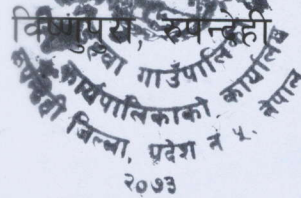 विष्णुपुरा, रुपन्देही
गाउँपालि
कार्यपालिकाको कार्यालय
रुपन्देही जिल्ला, प्रदेश नं ५, नेपाल
२०७३